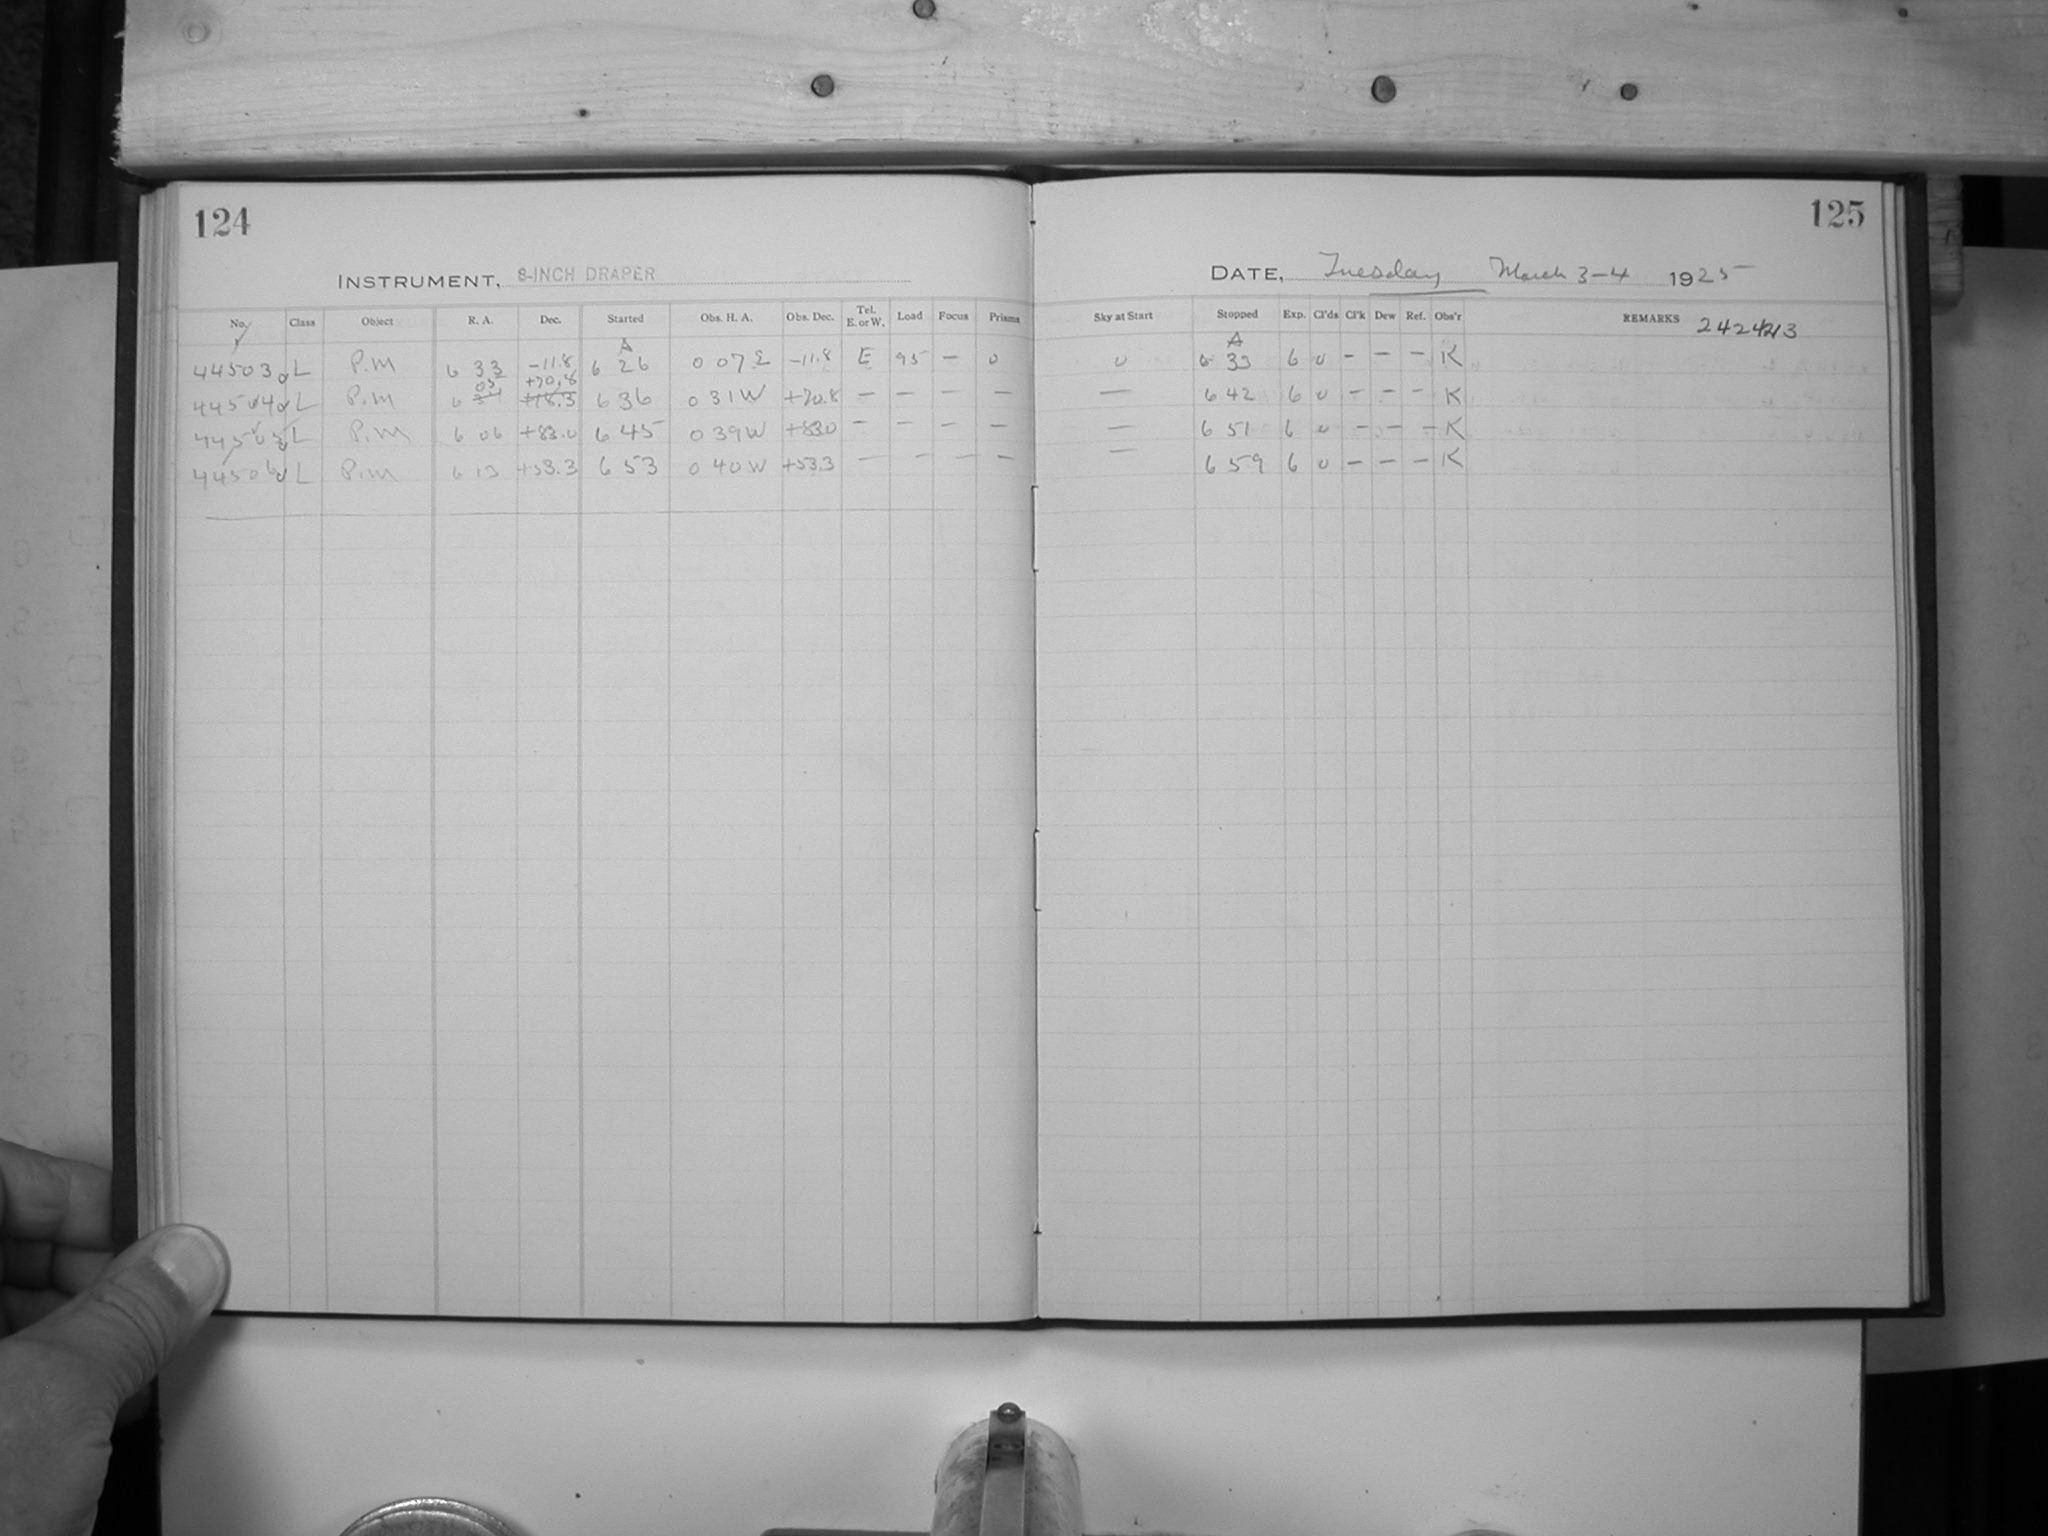 124
INSTRUMENT, 8-INCH DRAPER
No. Class Object R. A. Dec. Started Obs. H. A. Obs. Dec. Tel. E. or W. Load Focus Prisms
A
44503 L P.M 6 33 -11.8 6 26 0 07 E -11.8 E 95 - 0
05 +70.8
44504 L P.M 6 +78.3 6 36 0 31 W +70.8 - - - -
44505 L P.M 6 06 +83.0 6 45 0 39 W +83.0 - - - -
44506 L P.M 6 13 +53.3 6 53 0 40 W +53.3 - - - -
125
DATE, Tuesday March 3-4 1925
Sky at Start Stopped Exp. Cl'ds Cl'k Dew Ref. Obs'r REMARKS
A
0 6 33 6 0 - - - K
- 6 42 6 0 - - - K
- 6 51 6 0 - - - K
- 6 59 6 0 - - - K